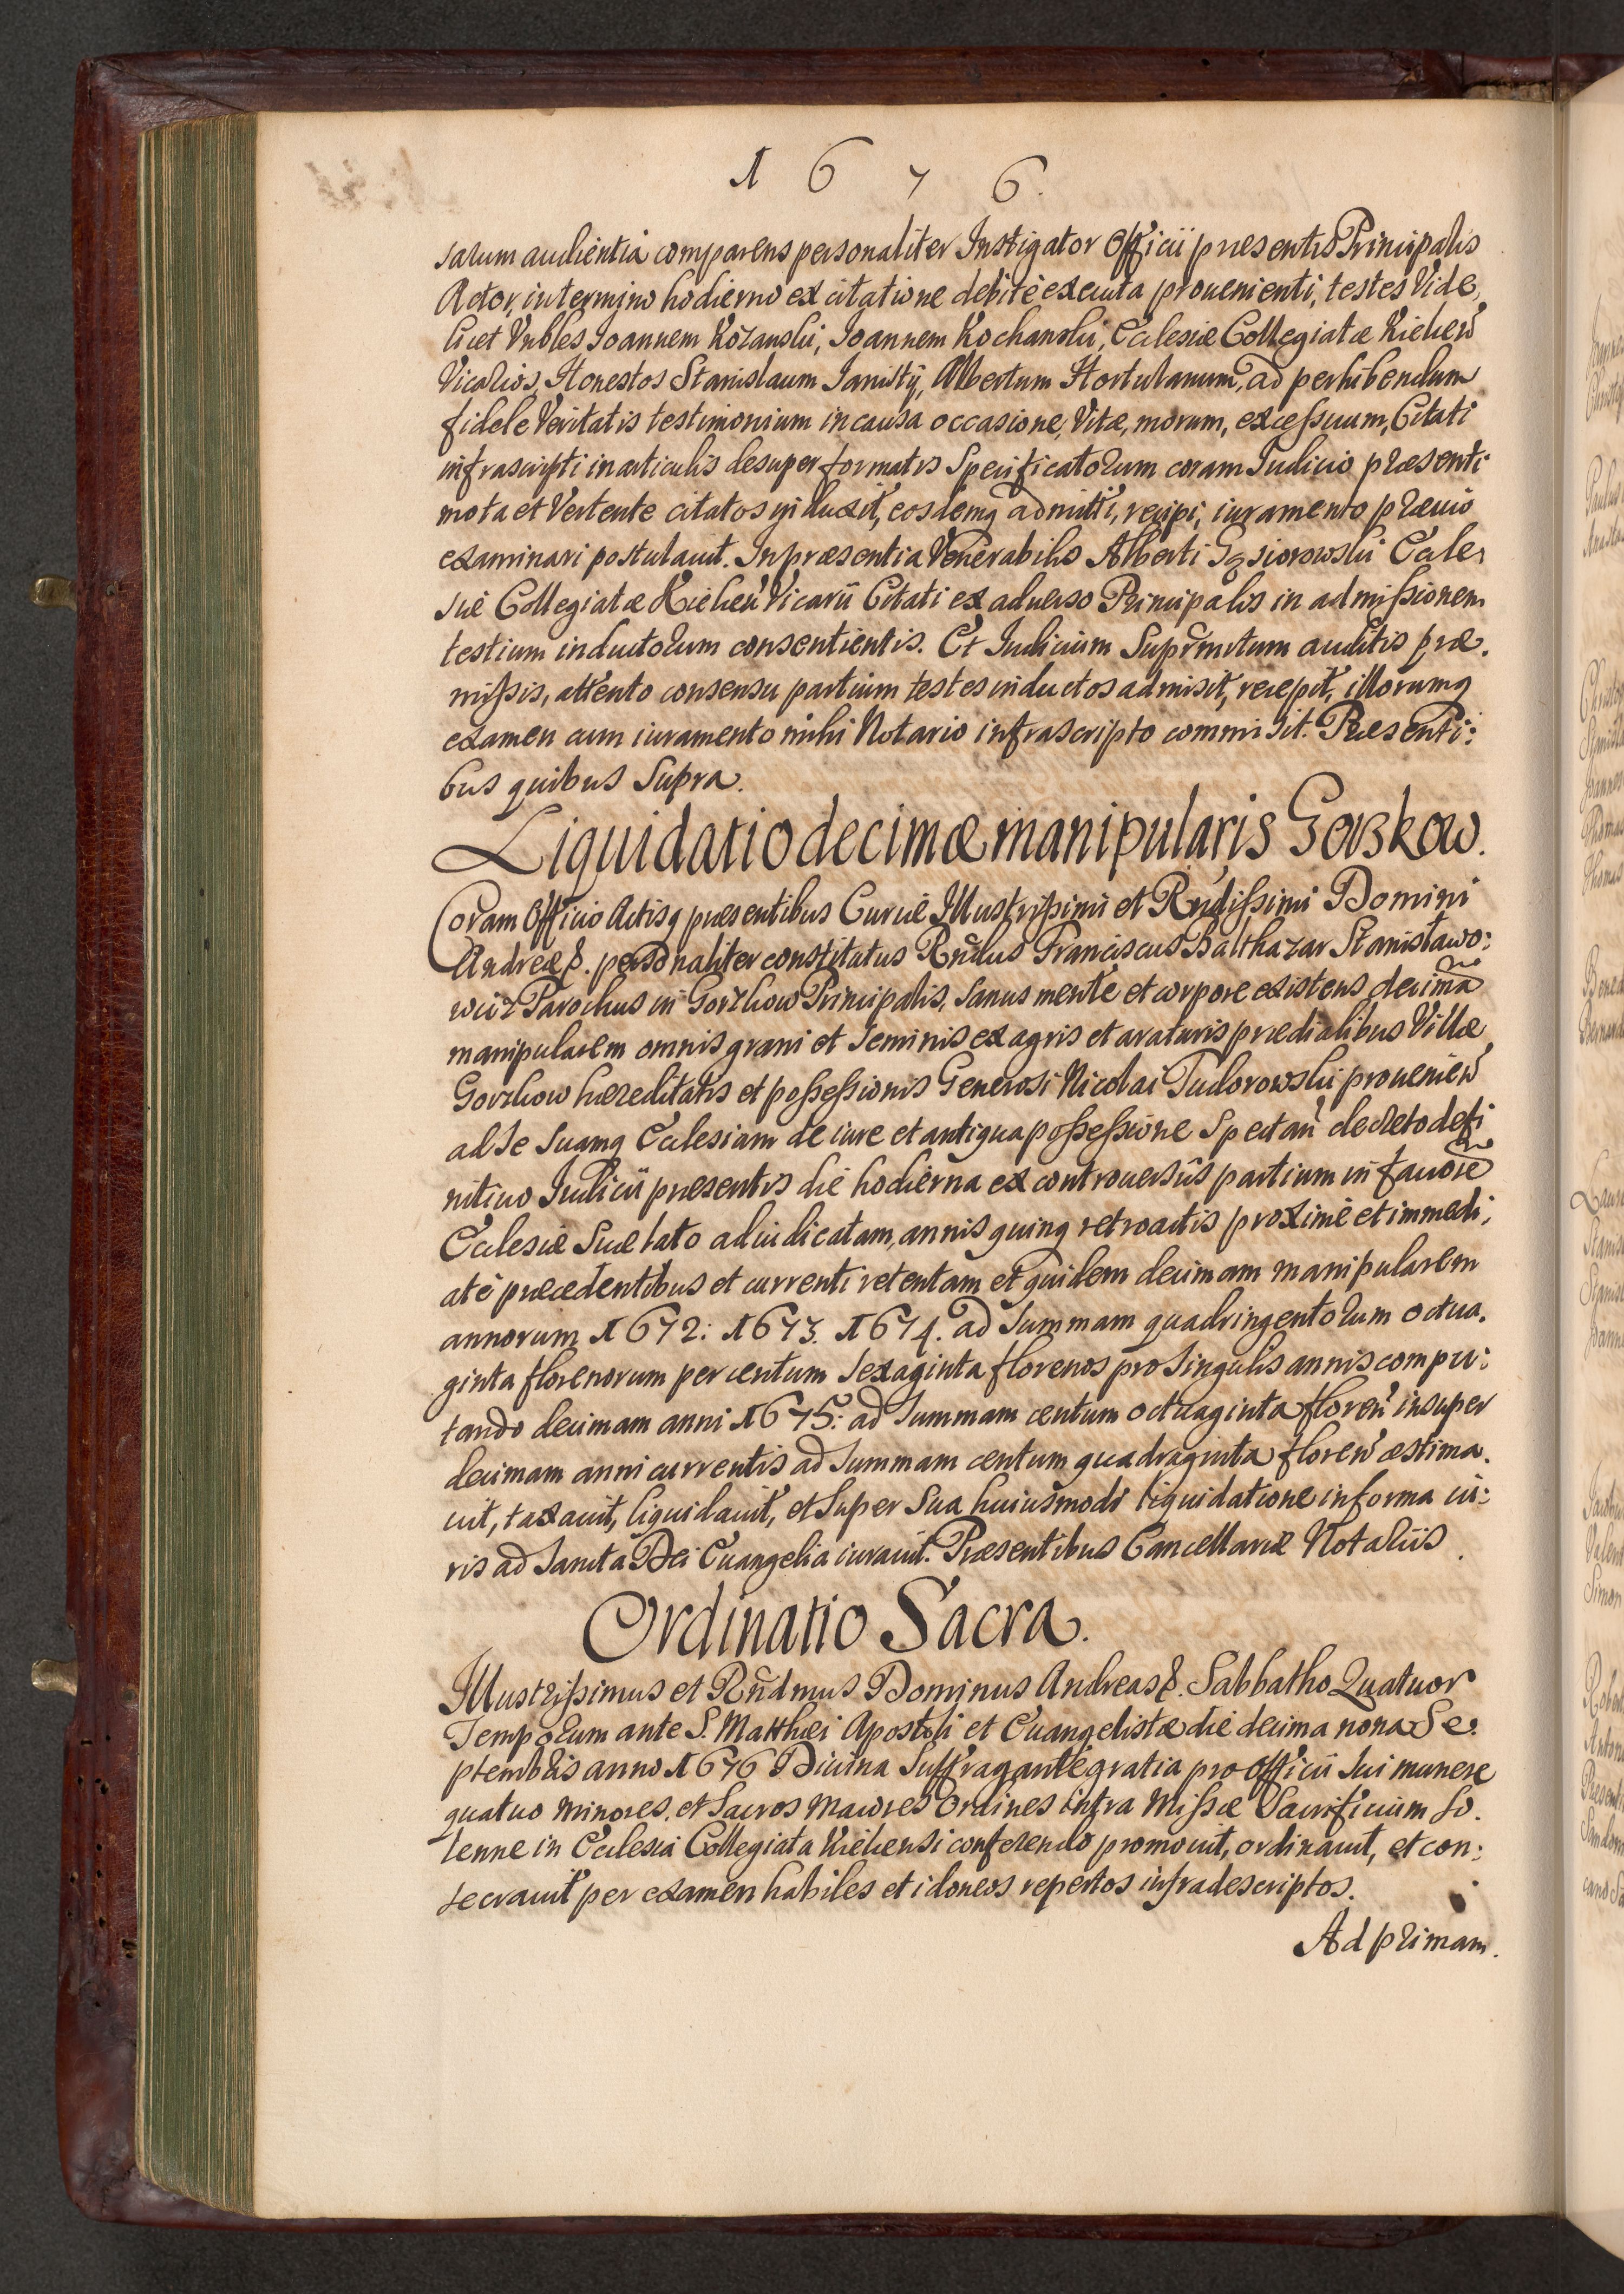 1676.
sarum audientiâ comparens personaliter Instigator Officii præsentis Principalis
Actor, in termino hodierno ex citatione debitè executa prouenienti, testes Vide,
licet Vnbles Ioannem Kozanski, Ioannem Kochanski, Ecclesiæ Collegiatæ Kielceñ
Vicarios, Honestos Stanislaum Janisty, Albertum Hortulanum, ad perhibendum
fidele Veritatis testimonium in causa occasione, Vitæ, morum, excessuum, Citati
infrascripti in articulis desuper formatis Specificatorum coram Iudicio præsenti
mota et Vertente citatos induxit, eosdemq admitti, recipi, iuramento præuio
examinari postulauit. In præsentia Venerabilis Alberti Gąsiorowski Eccle,
siæ Collegiatæ Kielceñ Vicarii Citati ex aduerso Principalis in admissionem
testium inductorum consentientis. Et Iudicium Suprãnotum auditis præ.
missis, attento consensu partium testes inductos admisit, recepit, illorumq
examen cum iuramento mihi Notario infrascripto commisit. Præsenti:
bus quibus Supra.
Liquidatio decimæ manipularis Gorzkow.
Coram Officio Actisq præsentibus Curiæ Illustrissimi et Rñdissimi Domini
Andreæ &. personaliter constitutus Rñdus Franciscus Balthazar Stanisławo:
wicz Parochus in Gorzkow Principalis, sanus mente et corpore existens decimã
manipularem omnis grani et seminis ex agris et araturis prædialibus Villæ
Gorzkow hæreditatis et possessionis Generosi Nicolai Tudorowski prouenieñ
ad se suamq Ecclesiam de iure et antiqua possessione Spectañ decreto defi
nitiuo Iudicii præsentis die hodierna ex controuersiis partium in fauorẽ
Ecclesiæ Suæ lato adiudicatam, annis quinq retroactis proximè et immedi,
atè præcedentibus et currenti retentam et quidem decimam manipularem
annorum 1672: 1673. 1674. ad Summam quadringentorum octua.
ginta florenorum per centum sexaginta florenos pro singulis annis compu:
tando decimam anni 1675: ad Summam centum octuaginta floreñ insuper
decimam anni currentis ad Summam centum quadraginta floreñ æstima.
uit, taxauit, liquidauit, et Super Sua huiusmodi liquidatione in forma iu:
ris ad Sancta Dei Euangelia iurauit. Præsentibus Cancellariæ Notariis.
Ordinatio Sacra.
Illustrissimus et Rñdmus Dominus Andreas &. Sabbatho Quatuor
Temporum ante S. Matthæi Apostoli et Euangelistæ die decima nona Se.
ptembris anno 1676 Diuina Suffragante gratia pro officii sui munere
quatuo minores, et Sacros maiores Ordines intra Missæ Sacrificium So.
lenne in Ecclesia Collegiata Kielcensi conferendo promouit, ordinauit, et con:
secrauit per examen habiles et idoneos repertos infradescriptos.
Ad primam.